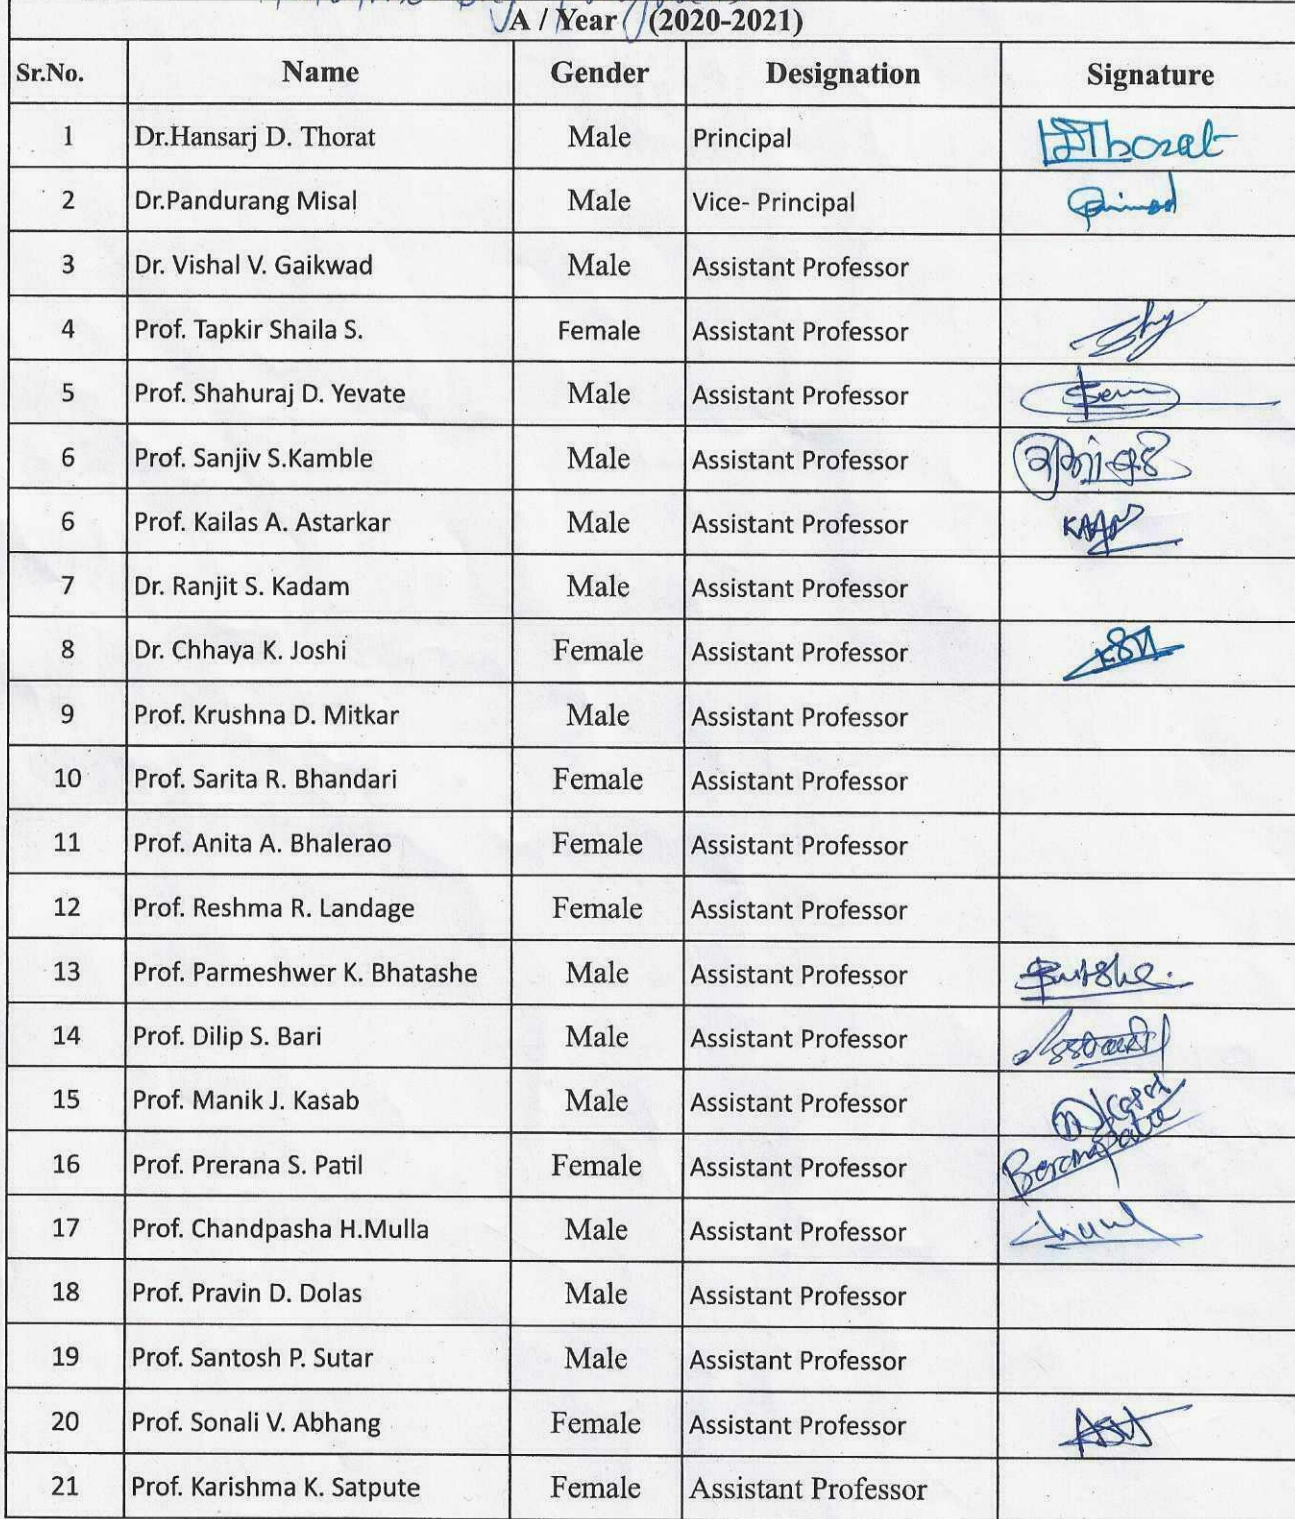 A / Year (2020-2021)
Sr.No. Name Gender Designation Signature
1 Dr.Hansarj D. Thorat Male Principal Thorat
2 Dr.Pandurang Misal Male Vice- Principal
3 Dr. Vishal V. Gaikwad Male Assistant Professor
4 Prof. Tapkir Shaila S. Female Assistant Professor
5 Prof. Shahuraj D. Yevate Male Assistant Professor
6 Prof. Sanjiv S.Kamble Male Assistant Professor
6 Prof. Kailas A. Astarkar Male Assistant Professor
7 Dr. Ranjit S. Kadam Male Assistant Professor
8 Dr. Chhaya K. Joshi Female Assistant Professor
9 Prof. Krushna D. Mitkar Male Assistant Professor
10 Prof. Sarita R. Bhandari Female Assistant Professor
11 Prof. Anita A. Bhalerao Female Assistant Professor
12 Prof. Reshma R. Landage Female Assistant Professor
13 Prof. Parmeshwer K. Bhatashe Male Assistant Professor
14 Prof. Dilip S. Bari Male Assistant Professor
15 Prof. Manik J. Kasab Male Assistant Professor
16 Prof. Prerana S. Patil Female Assistant Professor
17 Prof. Chandpasha H.Mulla Male Assistant Professor
18 Prof. Pravin D. Dolas Male Assistant Professor
19 Prof. Santosh P. Sutar Male Assistant Professor
20 Prof. Sonali V. Abhang Female Assistant Professor
21 Prof. Karishma K. Satpute Female Assistant Professor